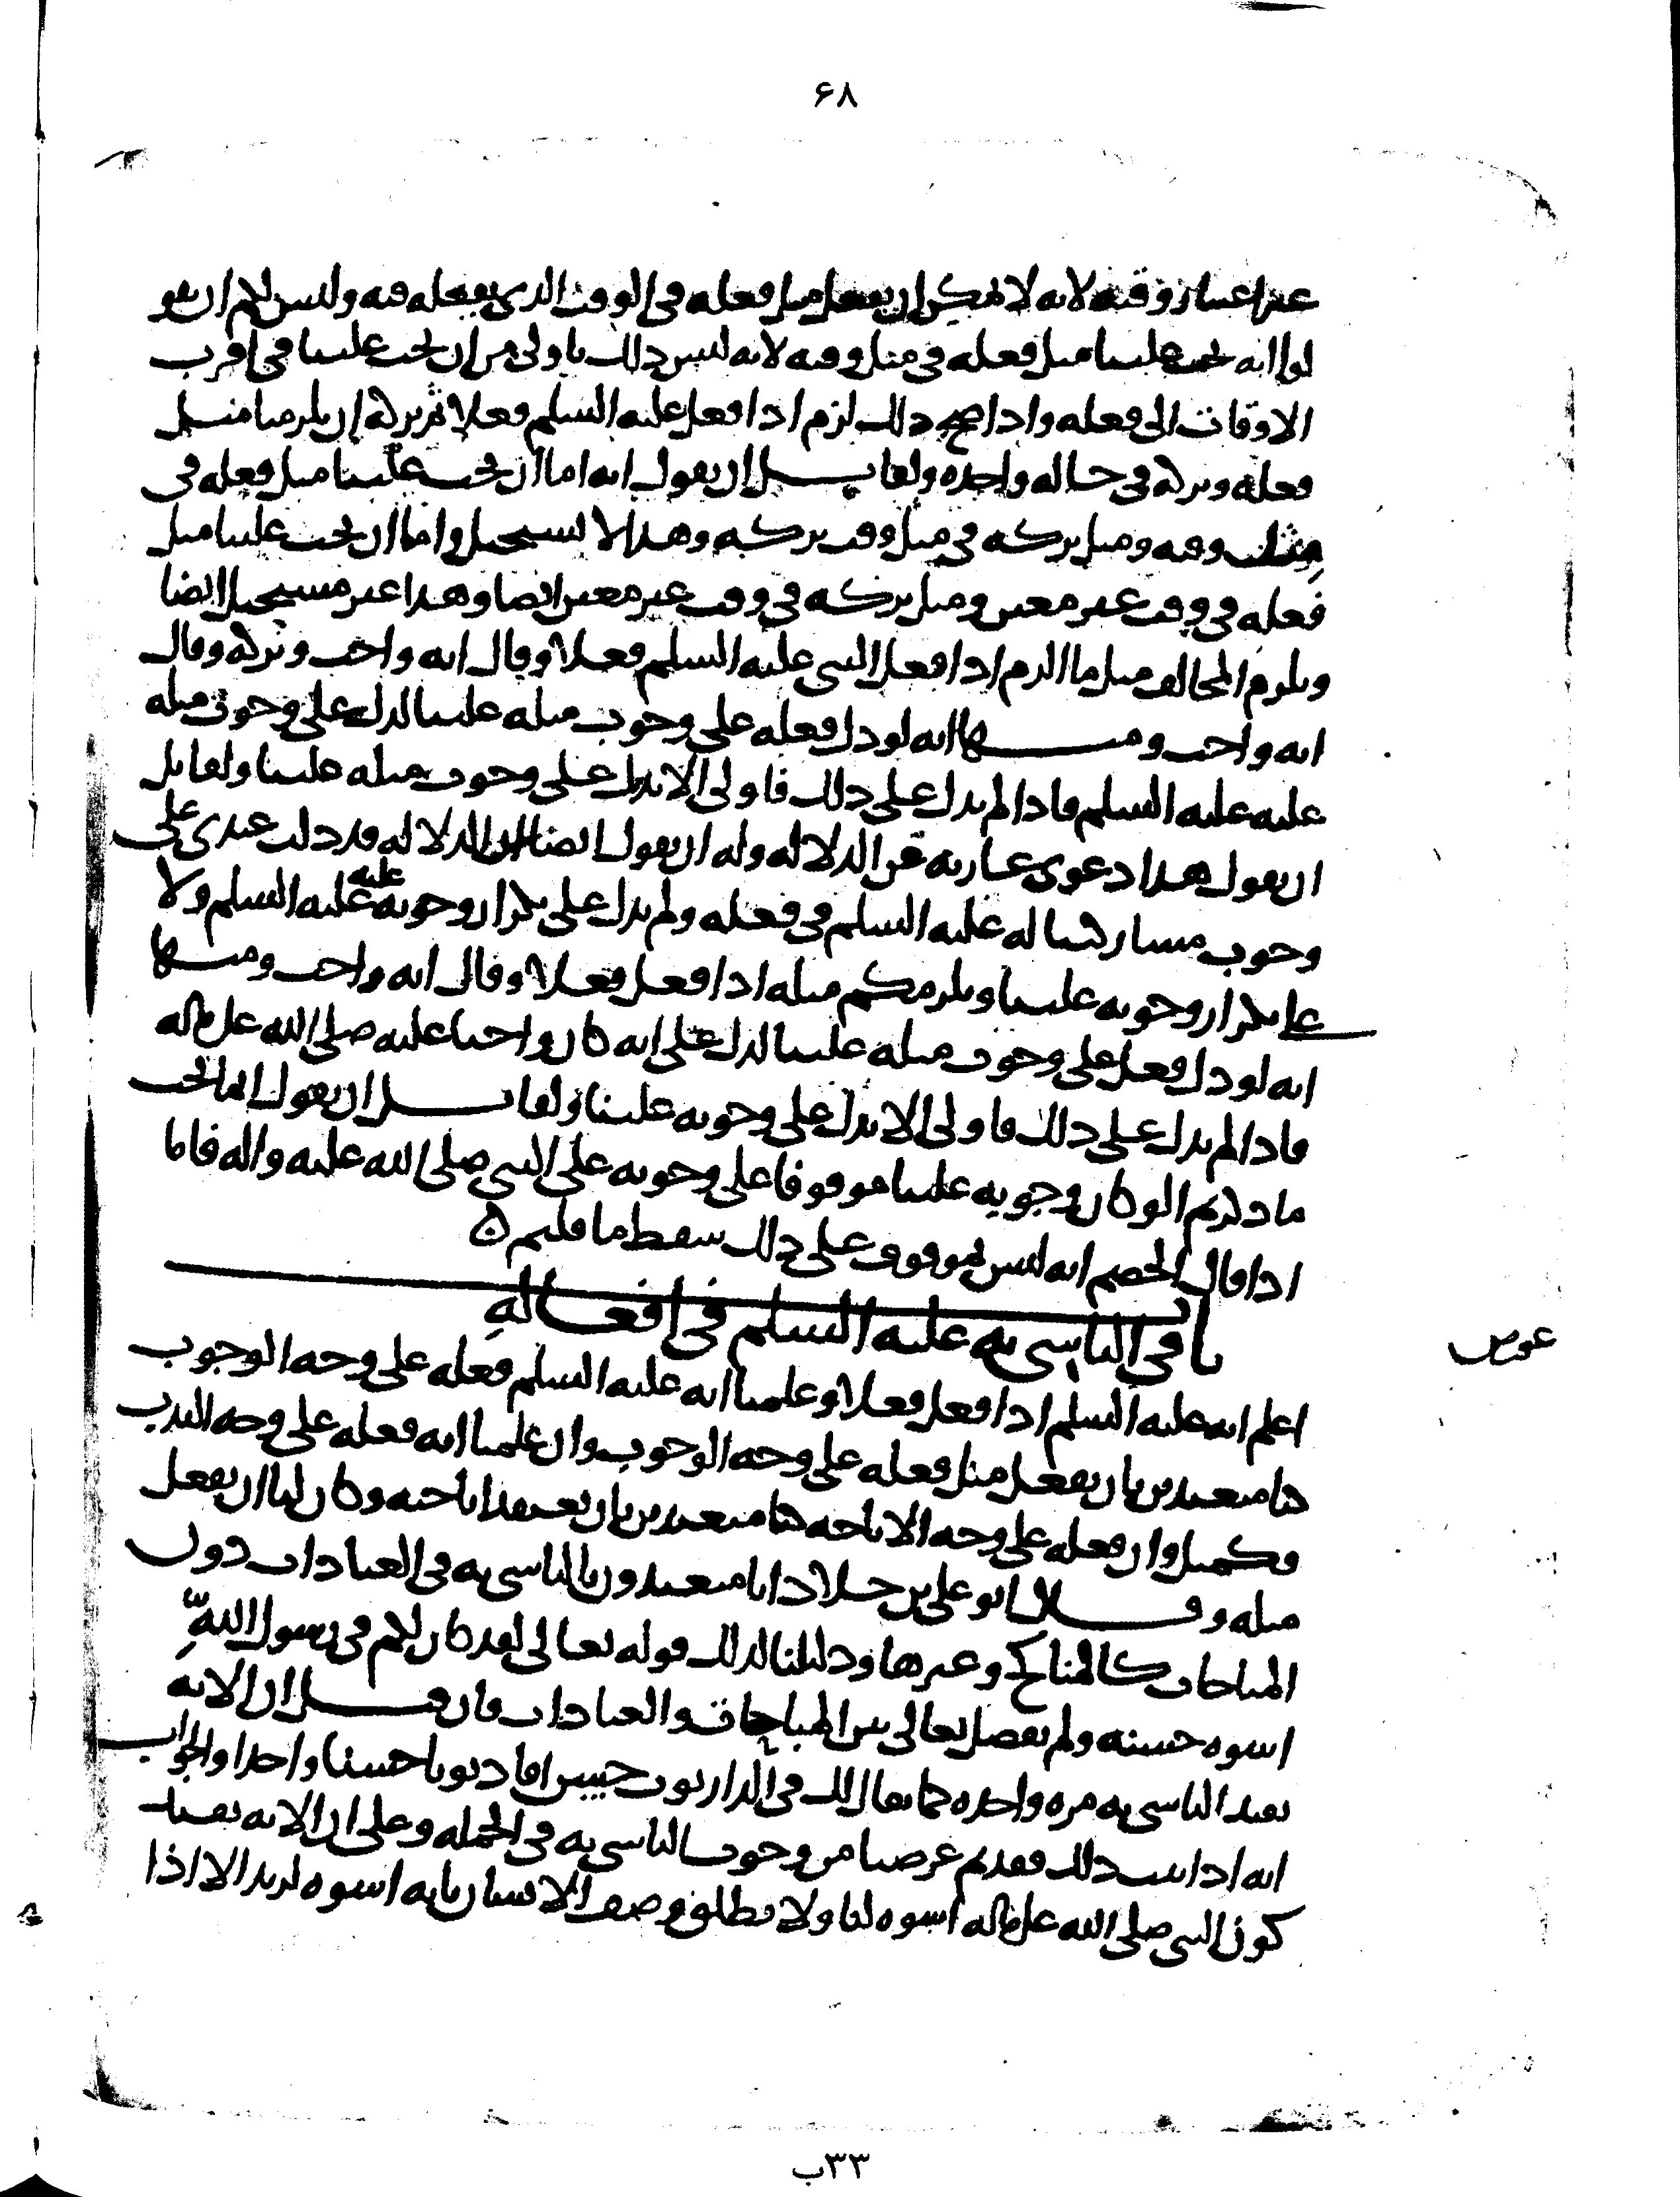 ٦٨
غير اعتبار وقته لانه لا يمكن ان يفعل مثل فعله في الوقت الذي يفعله فيه وليس لكم ان تقو
لوا انه يجب علينا مثل فعله في مثل وقته لانه ليس ذلك باولى من ان يجب علينا في اقرب
الاوقات الى فعله واذا صح ذلك لزم اذا فعل عليه السلم فعلا ثم تركه ان يلزمنا مثل
فعله وتركه في حاله واحده ولقايل ان يقول انه اما ان يجب علينا مثل فعله في
مثل وقته ومثل تركه في مثل وقت تركه وهذا لا يستحيل واما ان يجب علينا مثل
فعله في وقت غير معين ومثل تركه في وقت غير معين ايضا وهذا غير مستحيل ايضا
ويلزم المخالف مثل ما الزم اذا فعل النبي عليه السلم فعلا وقال انه واجب وتركه وقال
انه واجب ومنها انه لو دل فعله على وجوب مثله علينا لدل على وجوب مثله
عليه عليه السلم فاذا لم يدل على ذلك فاولى الا يدل على وجوب مثله علينا ولقايل
ان يقول هذا دعوى عاريه من الدلاله وله ان يقول ايضا ان الدلاله قد دلت عندي على
وجوب مشاركتنا له عليه السلم في فعله ولم يدل على تكرار وجوبه عليه عليه السلم ولا
على تكرار وجوبه علينا ويلزمكم مثله اذا فعل فعلا وقال انه واجب ومنها
انه لو دل فعله على وجوب مثله علينا لدل على انه كان واجبا عليه صلى الله عليه واله
فاذا لم يدل على ذلك فاولى الا يدل على وجوبه علينا ولقايل ان يقول انما يجب
ما ذكرتم الو كان وجوبه علينا موقوفا على وجوبه على النبي صلى الله عليه واله فاما
اذا قال الخصم انه ليس بموقوف على ذلك سقط ما قلتم ه
باب في التاسي به عليه السلم في افعاله
اعلم انه عليه السلم اذا فعل فعلا وعلمنا انه عليه السلم فعله على وجه الوجوب
كنا متعبدين بان نفعل مثل فعله على وجه الوجوب وان علمنا انه فعله على وجه الندب
فكمثل وان فعله على وجه الاباحه كنا متعبدين بان نعتقد اباحته وكان لنا ان نفعل
مثله وقال ابو علي بن خلاد انا متعبدون بالتاسي به في العبادات دون
المباحات كالمناكح وغيرها ودليلنا لذلك قوله تعالى لقد كان لكم في رسول الله
اسوه حسنه ولم يفصل تعالى بين المباحات والعبادات فان قيل ان الايه
تفيد التاسي به مره واحده كما يقال لك في الدار ثوب حسن افاد ثوبا حسنا واحدا والجواب
انه اذا ثبت ذلك فقد تم غرضنا من وجوب التاسي به في الجمله وعلى ان الايه تفيد
كون النبي صلى الله عليه واله اسوه لنا ولا يطلق وصف الانسان بانه اسوه لزيد الا اذا
عورض
٣٣ب